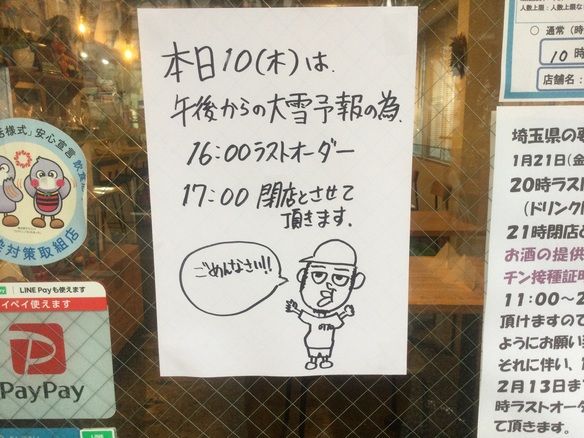 本日10(木)は、
午後からの大雪予報の為、
16:00ラストオーダー
17:00 閉店とさせて
頂きます。
ごめんなさい!!
活様式」安心宣言
対策取組店
LINE Payも使えます
ペイペイ使えます
PayPay
LINE
人数上限:
通常
10時
店舗名:
埼玉県の
1月21日(金
20時ラスト
(ドリンク
21時閉店と
お酒の提供
チン接種証
11:00~2
頂けますので
ようにお願い
それに伴い、
2月13日ま
時ラストオー
て頂きます。